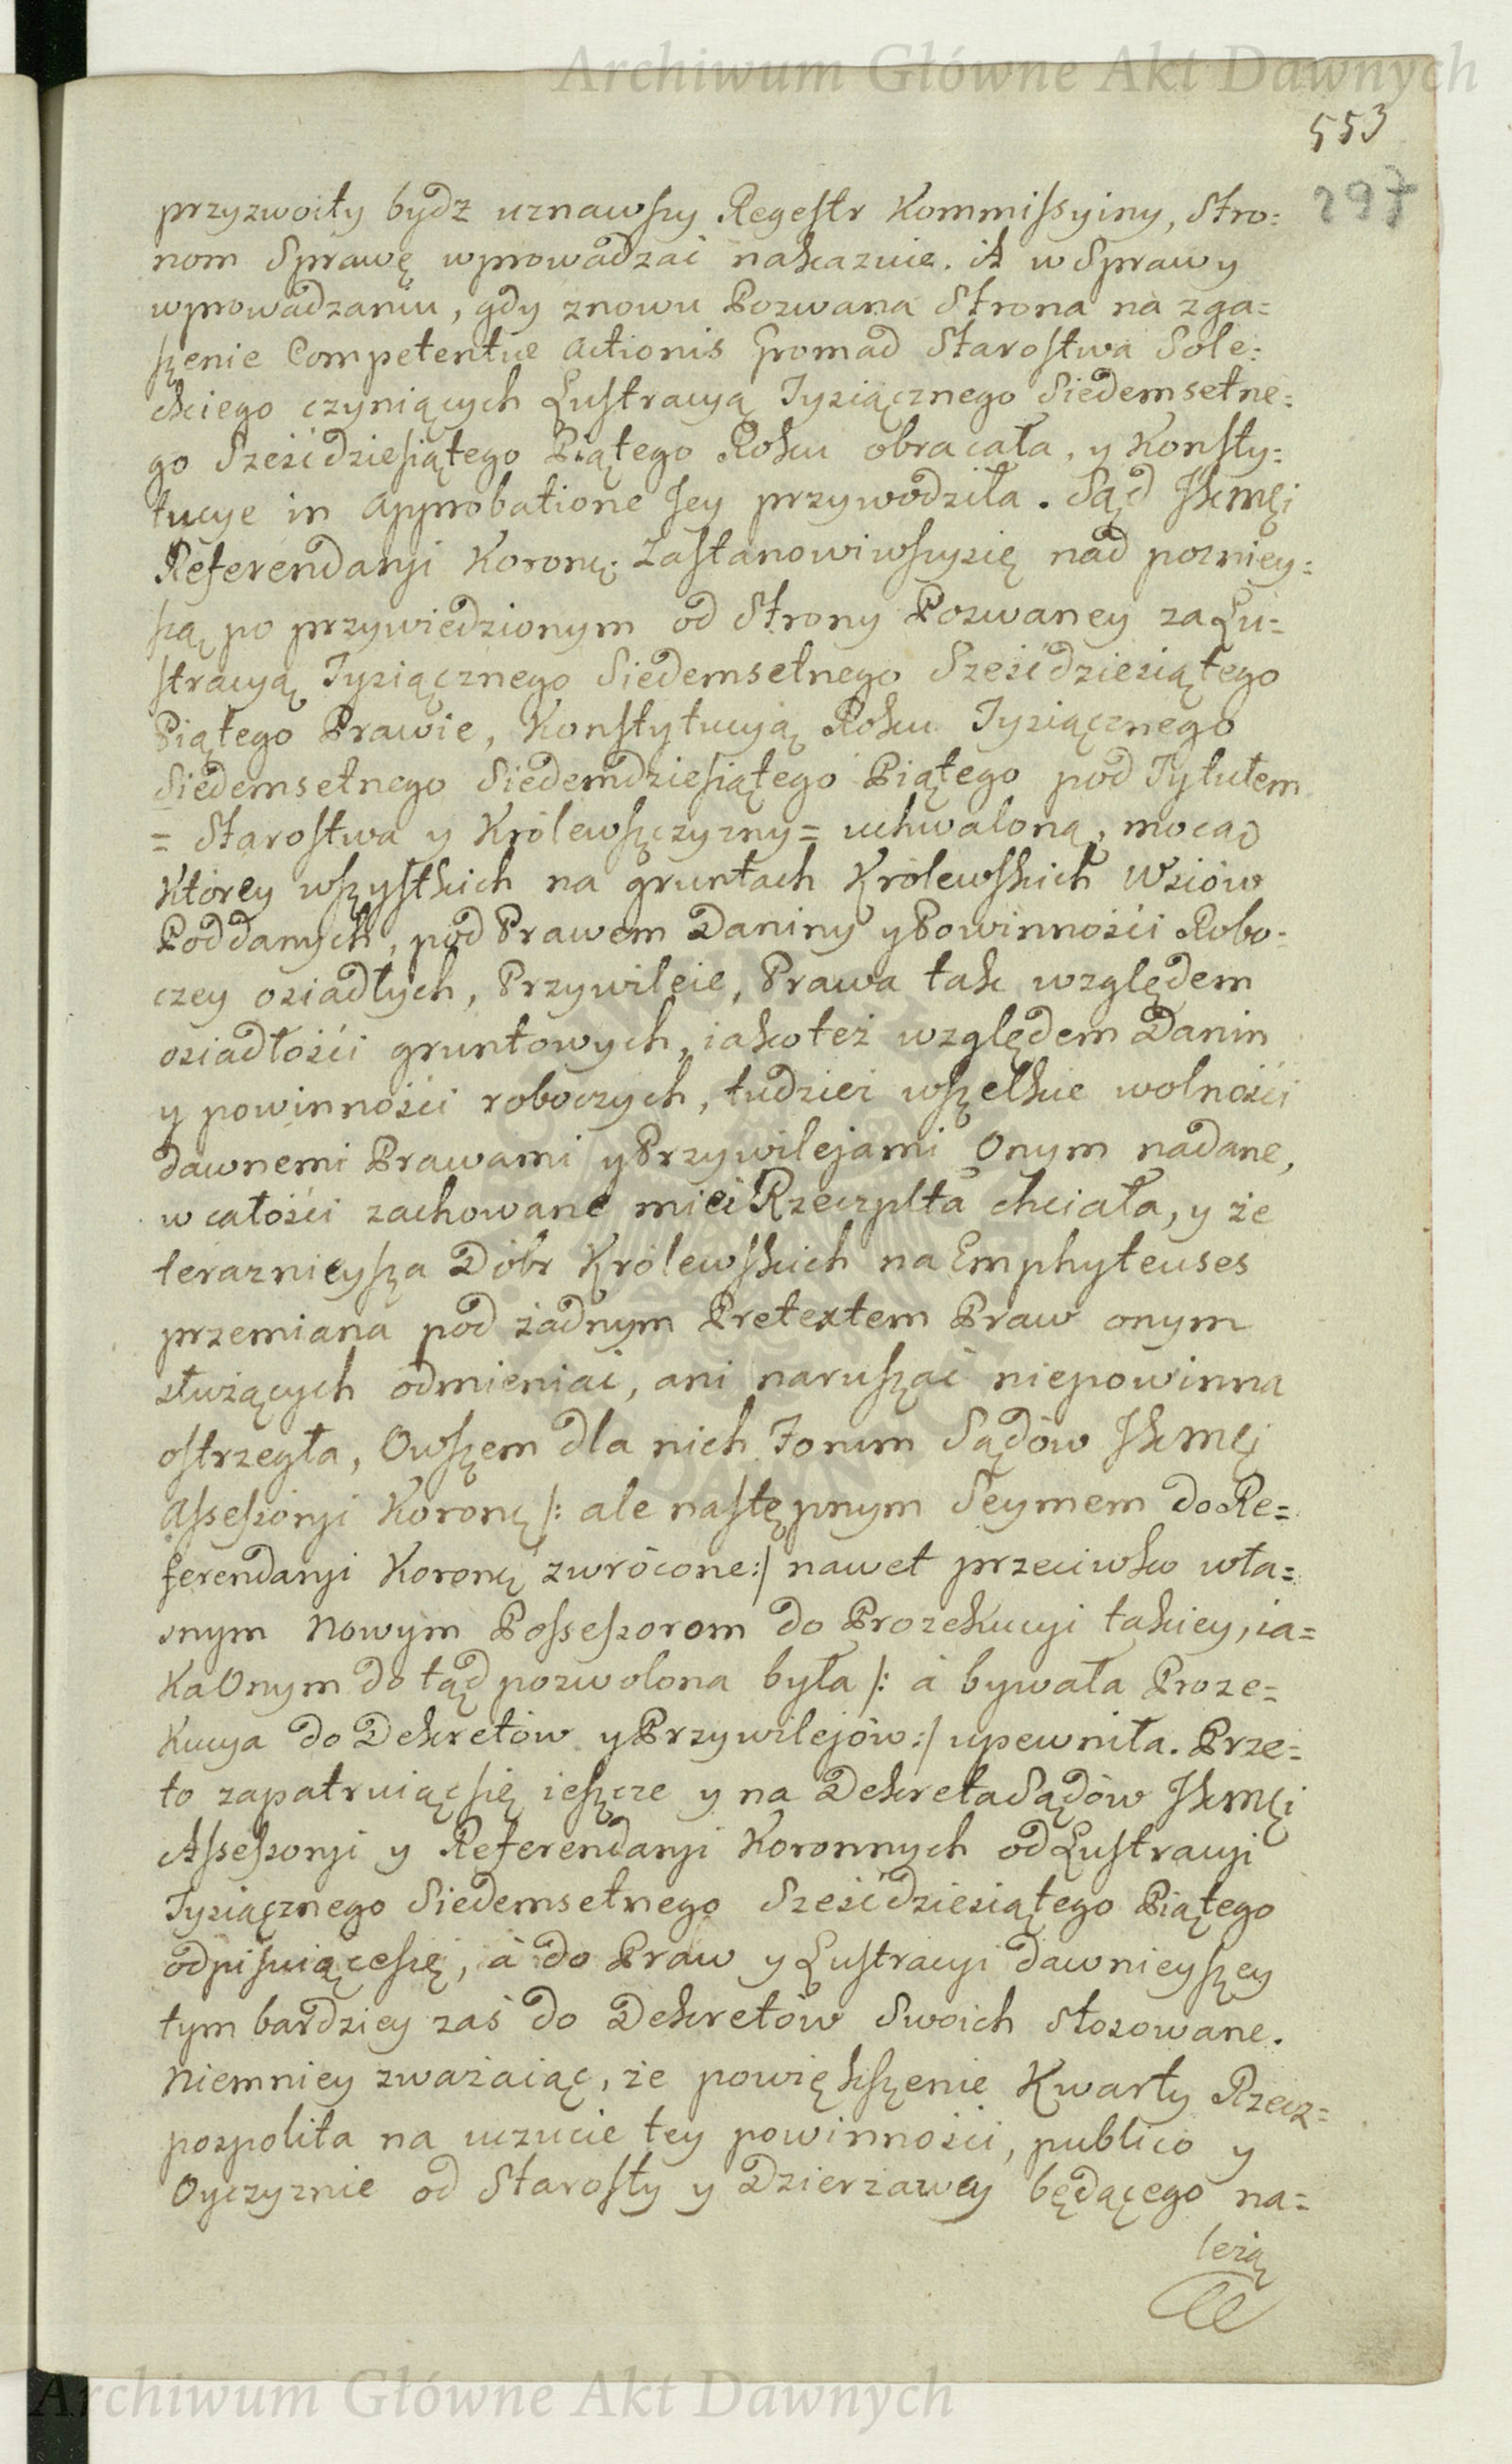 Archiwum Główne Akt Dawnych
553
297
przyzwoity bydz uznawszy Regestr Kommissyiny, Stro=
nom Sprawę wprowadzać nakazuie. A w Sprawy
wprowadzaniu, gdy znowu Pozwana Strona na zga=
szenie Competentiæ Actionis Gromad Starostwa Sole=
ckiego czyniących Lustracyą Tysiącznego Siedemsetne=
go Sześćdziesiątego Piątego Roku obracała, y Konsty=
tucye in Approbatione Jey przywodziła. Sąd JKMci
Referendaryi Koronę: Zastanowiwszysię nad pozniey=
szą po przywiedzionym od Strony Pozwaney za Lu=
stracyą Tysiącznego Siedemsetnego Sześćdziesiątego
Piątego Prawie, Konstytucyią Roku Tysiącznego
Siedemsetnego Siedemdziesiątego Piątego pod Tytułem
= Starostwa y Królewszczyzny = uchwaloną, mocą
Którey wszystkich na gruntach Królewskich Wsiów
Poddanych, pod Prawem Daniny y Powinności Robo=
czey osiadłych, Przywileie, Prawa tak względem
osiadłości gruntowych, iako też względem Danin
y powinności roboczych, tudzież wszelkie wolności
dawnemi Prawami y Przywilejami Onym nadane,
w całości zachowane mieć Rzeczplta chciała, y że
teraznieysza Dóbr Królewskich na Emphyteuses
przemiana pod żadnym Pretextem Praw onym
służących odmieniać, ani naruszać niepowinna
ostrzegła, Owszem dla nich Forum Sądów JKMci
Assessoryi Koronę /: ale następnym Seymem do Re=
ferendaryi Koronę zwrócone :/ nawet przeciwko wła=
snym Nowym Possessorom do Prozekucyi takiey, ia=
Ka Onym do tąd pozwolona była /: á bywała Proze=
Kucya do Dekretów y Przywilejów :/ upewniła. Prze=
to zapatruiącsię ieszcze y na Dekreta Sądów JKMci
Assessoryi y Referendaryi Koronnych od Lustracyi
Tysiącznego Siedemsetnego Sześćdziesiątego Piątego
odpisuiącesię, á do Praw y Lustracyi dawnieyszey
tym bardziey zaś do Dekretów Swoich Stosowane.
Niemniey zważaiąc, że powiększenie Kwarty Rzecz=
pospolita na uczucie tey powinności, publico y
Oyczyznie od Starosty y Dzierżawcy będącego na=
leżą
Archiwum Główne Akt Dawnych